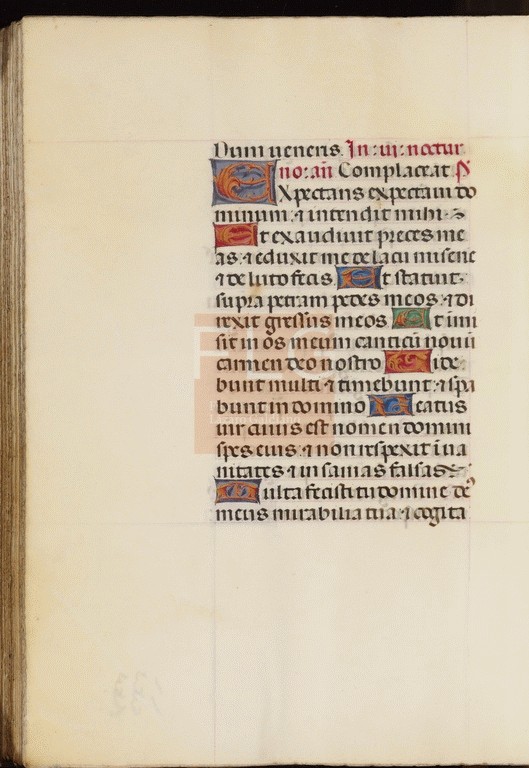 Dum veneris. In .iii. noctur
no. an̄. Complaceat. P̄
EXpectans expectavi do
minum: ⁊ intendit mihi.
Et exaudivit preces me
as: ⁊ eduxit me de lacu miserie
⁊ de luto fecis. Et statuit
supra petram pedes meos: ⁊ di
rexit gressus meos. Et imi
sit in os meum canticū novū
carmen deo nostro. Vide
bunt multi ⁊ timebunt: ⁊ spa
bunt in domino. Beatus
vir cuius est nomen domini
spes eius: ⁊ non respexit i va
nitates ⁊ insanias falsas.
Multa fecisti tu domine de9
meus mirabilia tua: ⁊ cogita